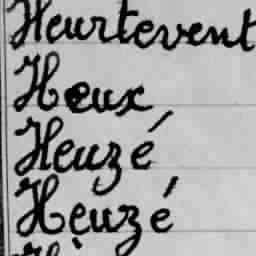 Heurtevent
Heux
Heuzé
Heuzé